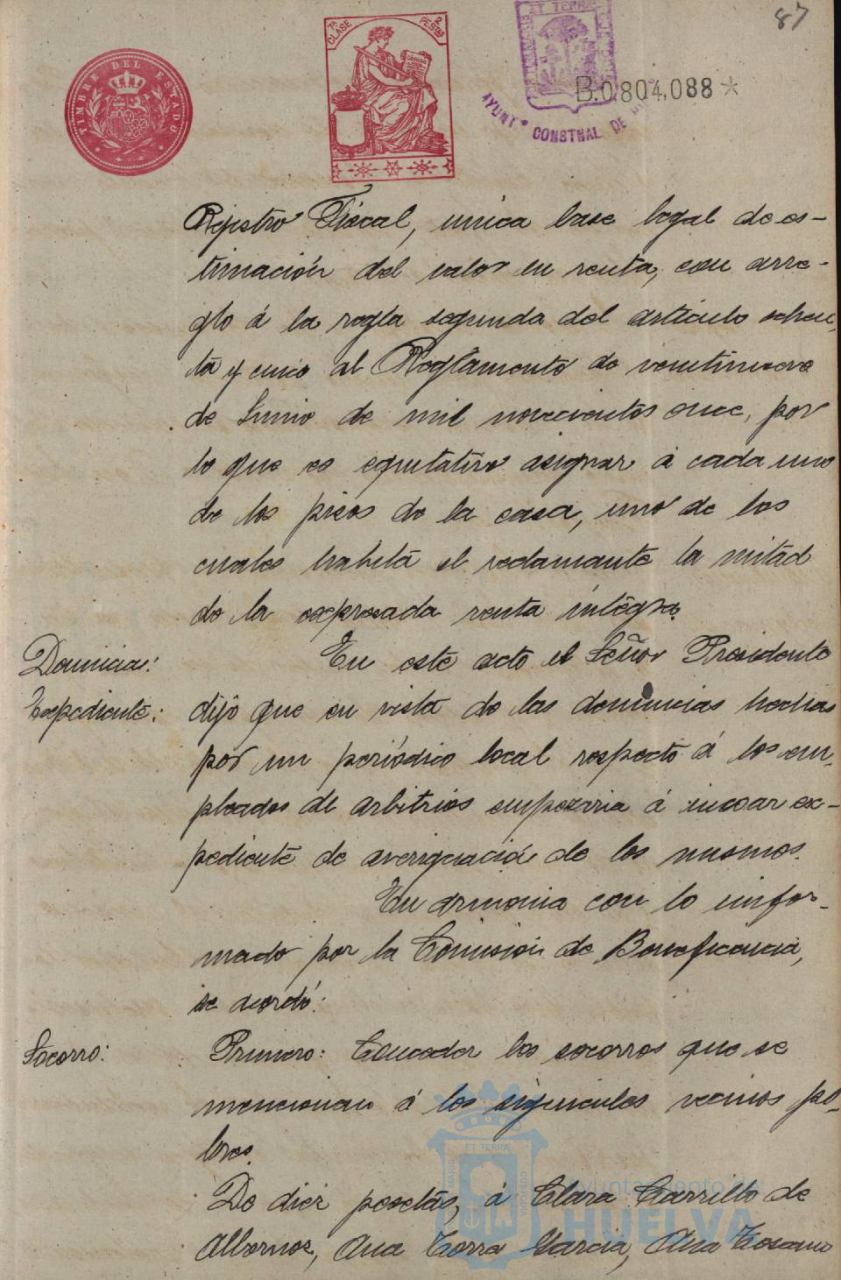 87
TIMBRE DEL ESTADO
7ª CLASE 2 PESETAS
ET TERRÆ
B.0.804,088 *
AYUNTº CONSTNAL DE
Rejistro Fiscal, unica base legal de es-
timación del valor en renta, con arre-
glo á la regla segunda del artículo ochen-
ta y cinco al Reglamento de veintinueve
de Junio de mil novecientos once, por
lo que es equitativo asignar á cada uno
de los pisos de la casa, uno de los
cuales habita el reclamante la mitad
de la expresada renta integra.
Denuncia: En este acto el Señor Presidente
Expediente: dijo que en vista de las denuncias hechas
por un periódico local respecto á los em-
pleados de arbitrios empezaria á incoar ex-
pediente de averiguación de los mismos.
En armonia con lo infor-
mado por la Comisión de Beneficencia,
se acordó:
Socorro: Primero: Conceder los socorros que se
mencionan á los siguientes vecinos po-
bres.
De diez pesetas, á Clara Carrillo de
Albornoz, Ana Garcia, Ana
Ayuntamiento de
HUELVA